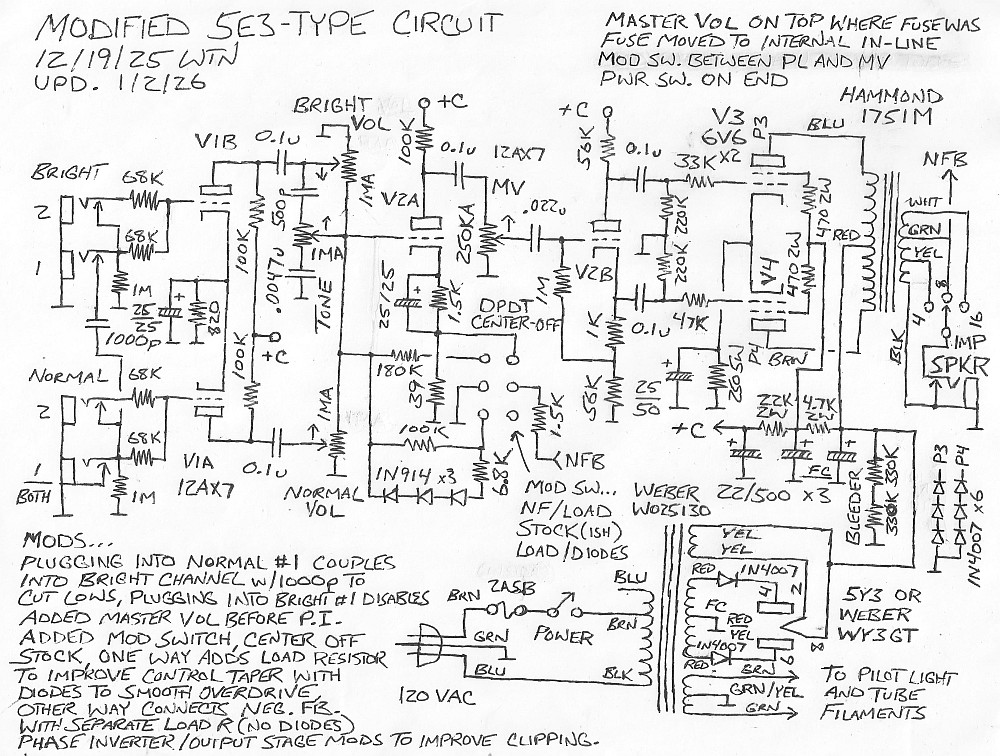 MODIFIED 5E3-TYPE CIRCUIT
12/19/25 WTN
UPD. 1/2/26
MASTER VOL ON TOP WHERE FUSE WAS
FUSE MOVED TO INTERNAL IN-LINE
MOD SW. BETWEEN PL AND MV
PWR SW. ON END
HAMMOND
1751M
BRIGHT
VOL
+C
+C
V3
6V6
P3
BLU
V1B
0.1u
100K
0.1u
12AX7
56K
0.1u
33K X2
NFB
BRIGHT
68K
500p
1MA
V2A
MV
.022u
220K
470 2W
WHT
2
68K
100K
1MA
250KA
RED
GRN
1
.0047u
V2B
220K
V4
470 2W
YEL
1M
25
25
820
TONE
25/25
1.5K
DPDT
CENTER-OFF
1M
0.1u
47K
1K
P4
BRN
BLK
4
8
16
IMP
1000p
100K
+C
SPKR
NORMAL
68K
1MA
180K
39
56K
25
50
250 5W
22K
2W
4.7K
2W
2
100K
1.5K
+C
68K
V1A
12AX7
0.1u
NORMAL
VOL
1N914 X3
6.8K
NFB
FC
22/500 X3
BLEEDER
330K
330K
P3
P4
1N4007 X6
1
BOTH
1M
MOD SW...
NF/LOAD
STOCK(ISH)
LOAD/DIODES
WEBER
W025130
MODS...
PLUGGING INTO NORMAL #1 COUPLES
INTO BRIGHT CHANNEL W/1000p TO
CUT LOWS, PLUGGING INTO BRIGHT #1 DISABLES
ADDED MASTER VOL BEFORE P.I.
ADDED MOD SWITCH, CENTER OFF
STOCK, ONE WAY ADDS LOAD RESISTOR
TO IMPROVE CONTROL TAPER WITH
DIODES TO SMOOTH OVERDRIVE,
OTHER WAY CONNECTS NEG. FB.
WITH SEPARATE LOAD R (NO DIODES)
PHASE INVERTER/OUTPUT STAGE MODS TO IMPROVE CLIPPING.
BRN
2ASB
BLU
GRN
POWER
BRN
BLU
BLK
120 VAC
YEL
YEL
RED
1N4007
FC
RED
YEL
4
2
1N4007
RED
6
8
BRN
GRN/YEL
GRN
5Y3 OR
WEBER
WY3GT
TO PILOT LIGHT
AND TUBE
FILAMENTS